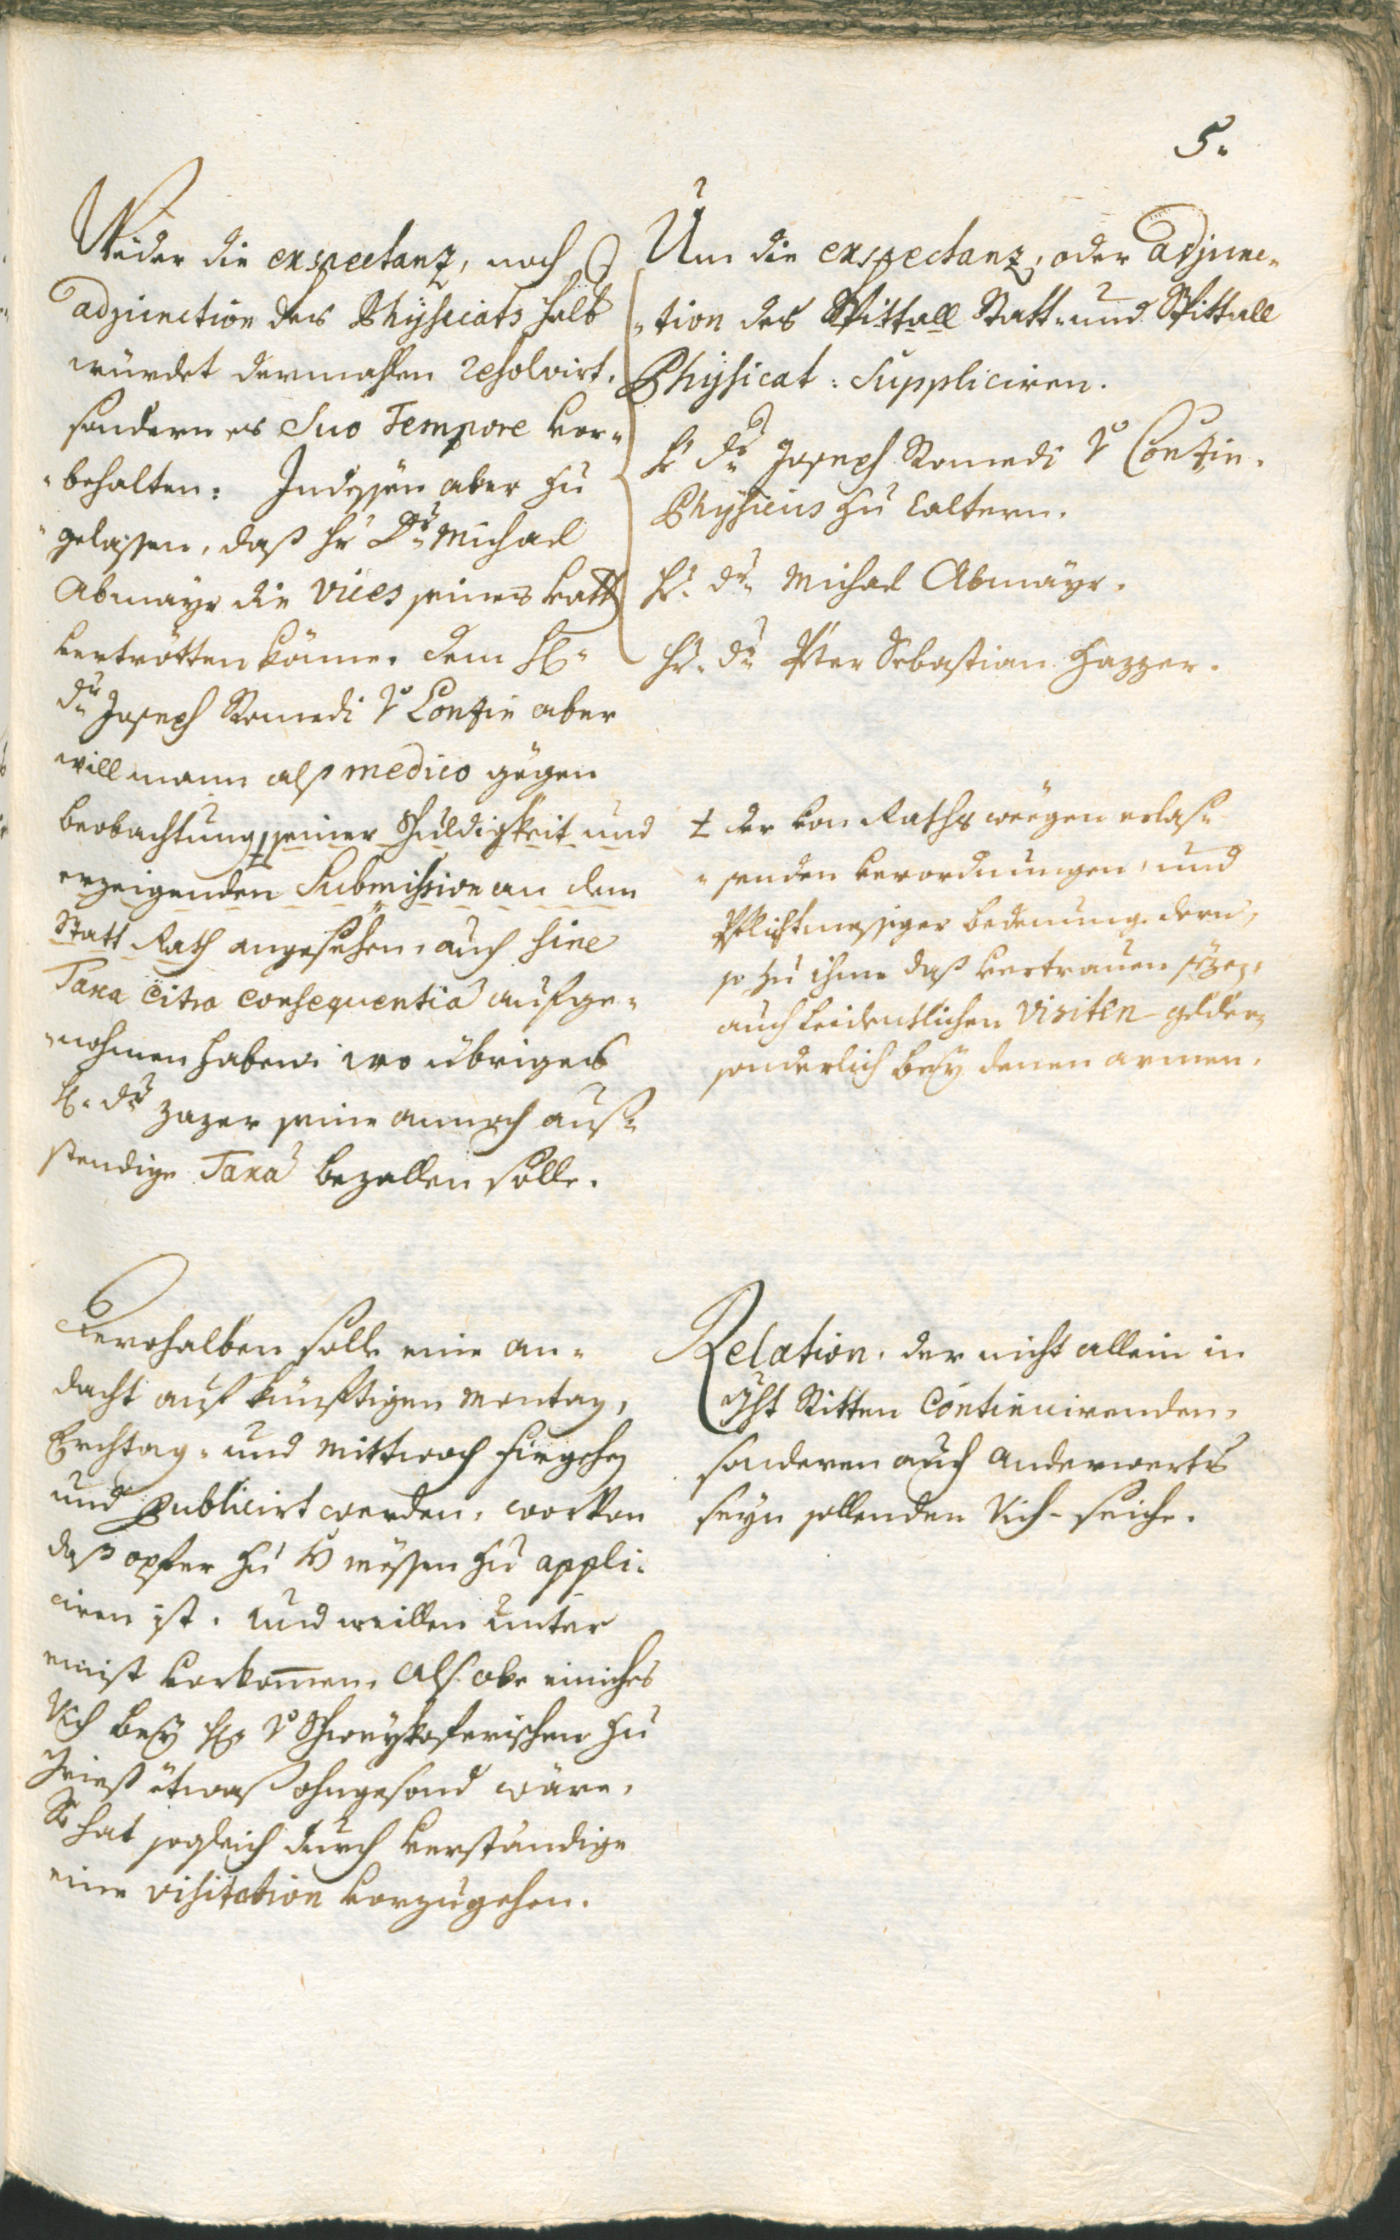 5.
Weder die expectanz, noch
adjunction des Physicats halb
würdet dermahlen resolvirt,
sondern es Suo Tempore vor-
-behalten: Indessen aber zu
gelassen, daß Hr Dr Michael
Abmayr die vices seines vatt
vertrötten könne. dem H:
Dr Joseph Romedi v Contin aber
will mann alß medico gegen
beobachtung ‡ seiner Schuldigkeit und
erzeigenden Submission an dem
Statt Rath angesehen, auch sine
Taxa citra consequentia aufge-
-nohmen haben: wo übrigens
H: Dr Zazer seine annoch auß-
stendige Taxa bezallen solle.
Um die expectanz, oder adjunc-
-tion des Spittall Statt- und Spittall
Physicat: Suppliciren.
Hr Dr Joseph Romedi v Contin.
Physicus zu Caltern.
Hr: Dr Michael Abmayr.
Hr: Dr Peter Sebastian Hazzer.
‡ der von Raths weegen erlas-
-senden verordnungen, und
Pflichtmessiger bedienung deren,
so zu ihme daß vertrauen sezen,
auch leidentlichen Visiten gelder
sonderlich bey denen armen.
Derohalben solle eine an-
dacht auf künftigen Montag,
Erchtag- und Mittwoch fürgehen
und publicirt werden, worvon
daß opfer zu H messen zu appli-
ciren ist. Und weillen unter
einist vorkommen, alß obe einiches
Vich bey H: v Schweykoferischen zu
Grieß etwaß ohngesond wäre,
So hat sogleich durch verständige
eine visitation vorzugehen.
Relation, der nicht allein in
Ght Ritten Continuirenden,
sonderen auch anderwerts
seyn sollenden Vich-seiche.